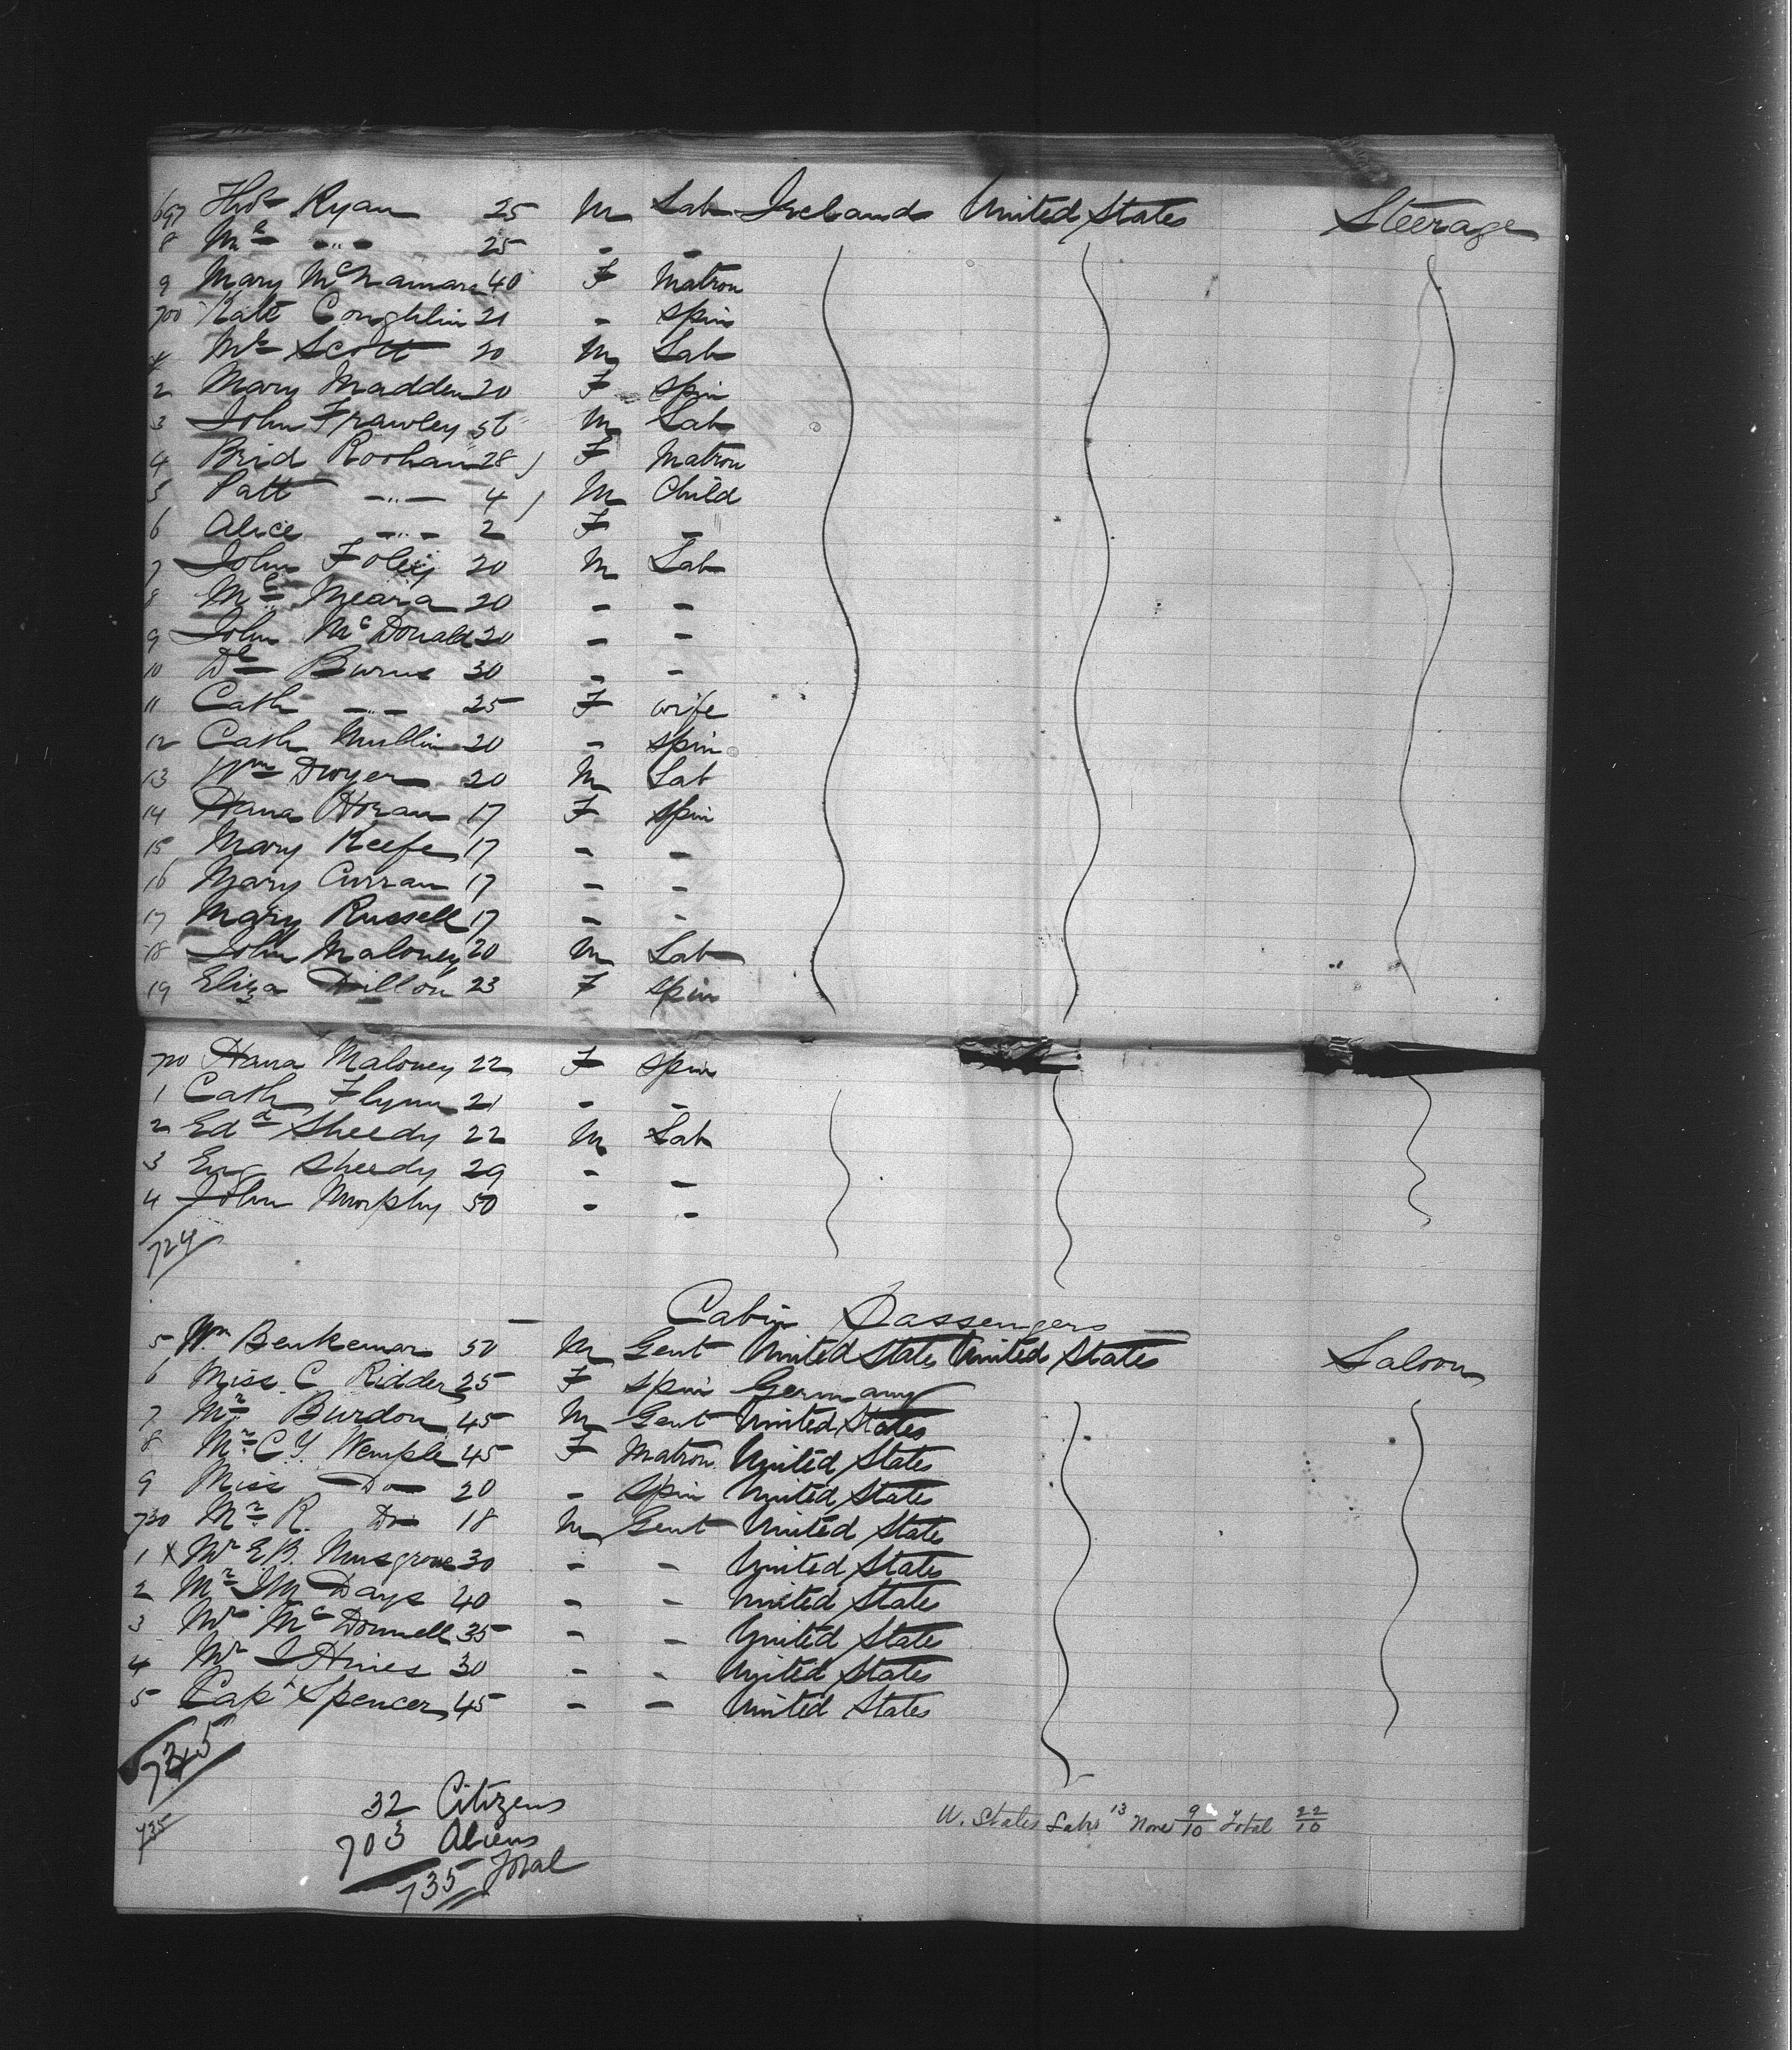 697 Thos Ryan 25 M Lab Ireland United States Steerage
8 Ml -"- 25 - -
9 Mary McNamara 40 F Matron
700 Kate Coughlin 21 - Spin
1 Ml Scott 20 M Lab
2 Mary Madden 20 F Spin
3 John Frawley 56 M Lab
4 Brid Roohan 28 F Matron
5 Patt -"- 4 M Child
6 Alice -"- 2 F -
7 John Foley 20 M Lab
8 Ml Meara 20 - -
9 John McDonald 20 - -
10 Dl Burns 30 - -
11 Cath -"- 25 F wife
12 Cath Mullin 20 - Spin
13 Wm Dwyer 20 M Lab
14 Hana Horan 17 F Spin
15 Mary Keefe 17 - -
16 Mary Curran 17 - -
17 Mary Russell 17 - -
18 John Maloney 20 M Lab
19 Eliza Dillon 23 F Spin
720 Hana Maloney 22 F Spin
1 Cath Flynn 21 - -
2 Edd Sheedy 22 M Lab
3 Eug Sheedy 29 - -
4 John Murphy 50 - -
724
Cabin Passengers
5 Wm Benkemar 50 M Gent United States United States Saloon
6 Miss C Ridder 25 F Spin Germany
7 Mr Burdon 45 M Gent United States
8 Mrs C Y. Wemple 45 F Matron United States
9 Miss Do 20 - Spin United States
730 Mr R. Do 18 M Gent United State
1 x Mr E B. Musgrove 30 - - United States
2 Mr JM Days 40 - - United States
3 Mr McDonnell 35 - - United States
4 Mr J Hines 30 - - United States
5 Capt Spencer 45 - - United States
735
735
32 Citizens
703 Aliens
735 Total
U. States Labs 13 None 9/10 Total 22/10